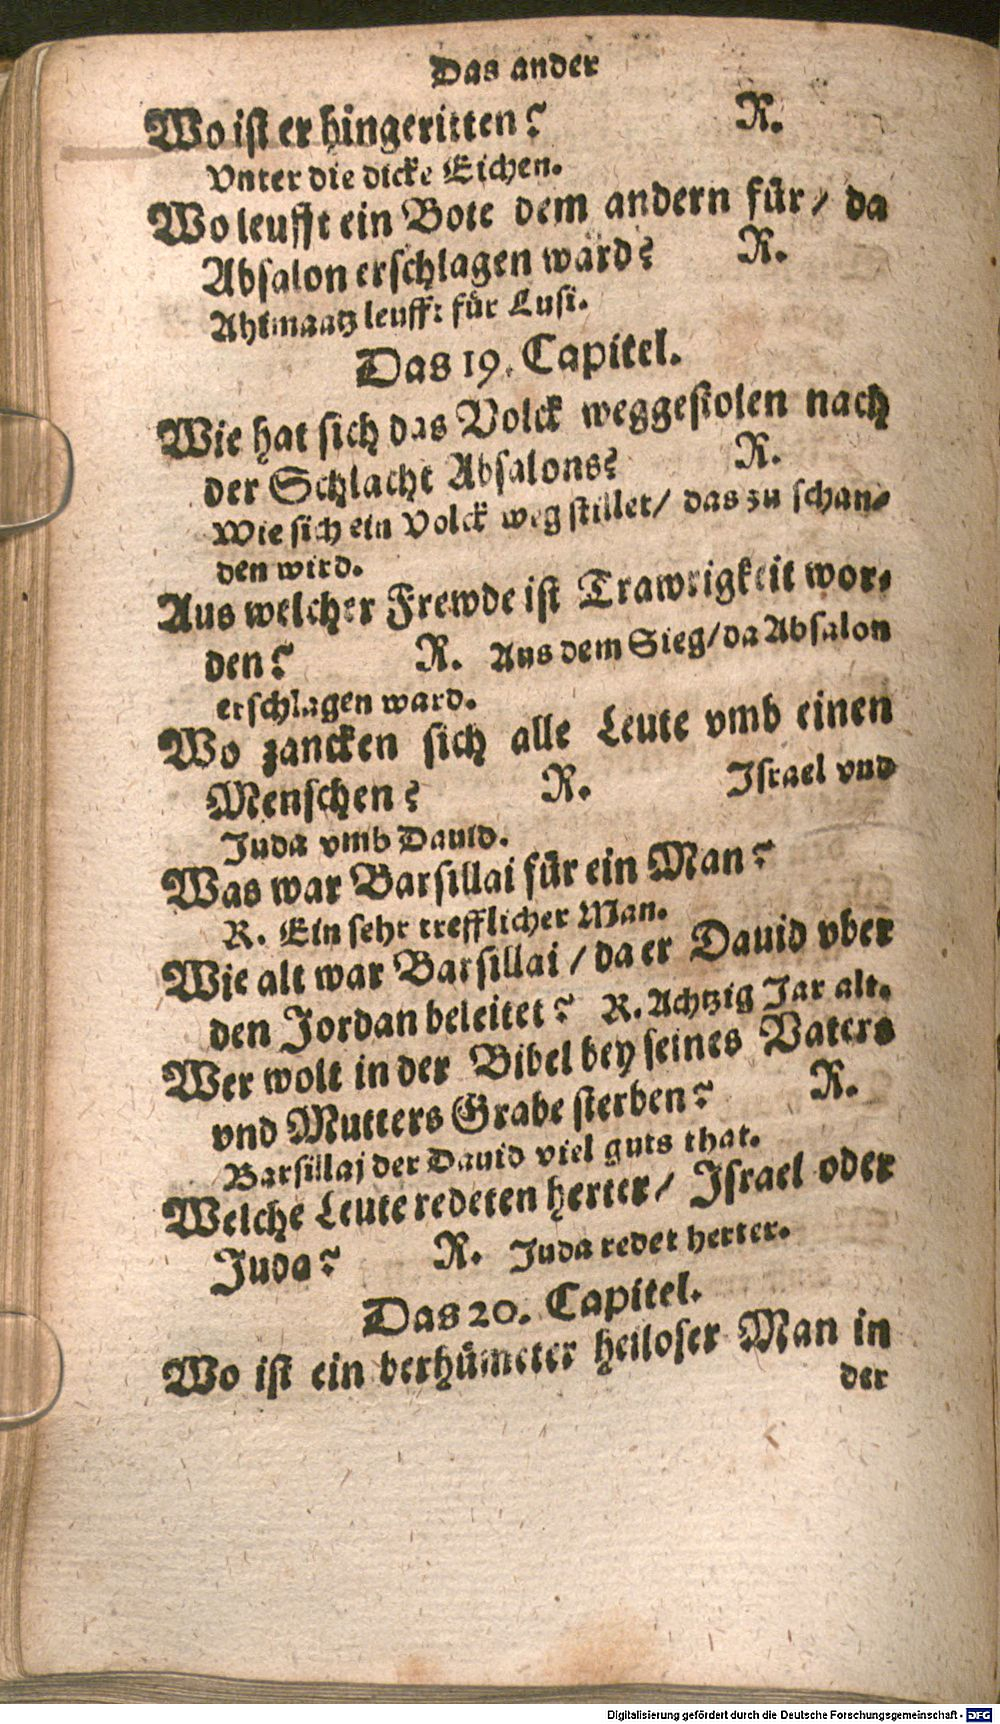 Das ander
Wo ist er hingeritten? R.
Vnter die dicke Eichen.
Wo leufft ein Bote dem andern für / da
Absalon erschlagen ward? R.
Ahimaatz leufft für Cusi.
Das 19. Capitel.
Wie hat sich das Volck weggestolen nach
der Schlacht Absalons? R.
Wie sich ein Volck weg stillet / das zu schan-
den wird.
Aus welcher Frewde ist Trawrigkeit wor-
den? R. Aus dem Sieg / da Absalon
erschlagen ward.
Wo zancken sich alle Leute vmb einen
Menschen? R. Israel vnd
Juda vmb Dauid.
Was war Barsillai für ein Man?
R. Ein sehr trefflicher Man.
Wie alt war Barsillai / da er Dauid vber
den Jordan beleitet? R. Achtzig Jar alt.
Wer wolt in der Bibel bey seines Vaters
vnd Mutters Grabe sterben? R.
Barsillaj der Dauid viel guts that.
Welche Leute redeten herter / Israel oder
Juda? R. Juda redet herter.
Das 20. Capitel.
Wo ist ein berhümeter heiloser Man in
der
Digitalisierung gefördert durch die Deutsche Forschungsgemeinschaft - DFG